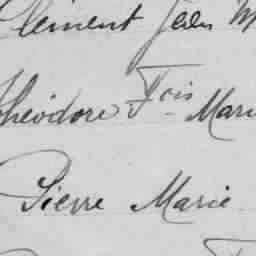 Clément Jean M
Théodore Fois Mari
Pierre Marie